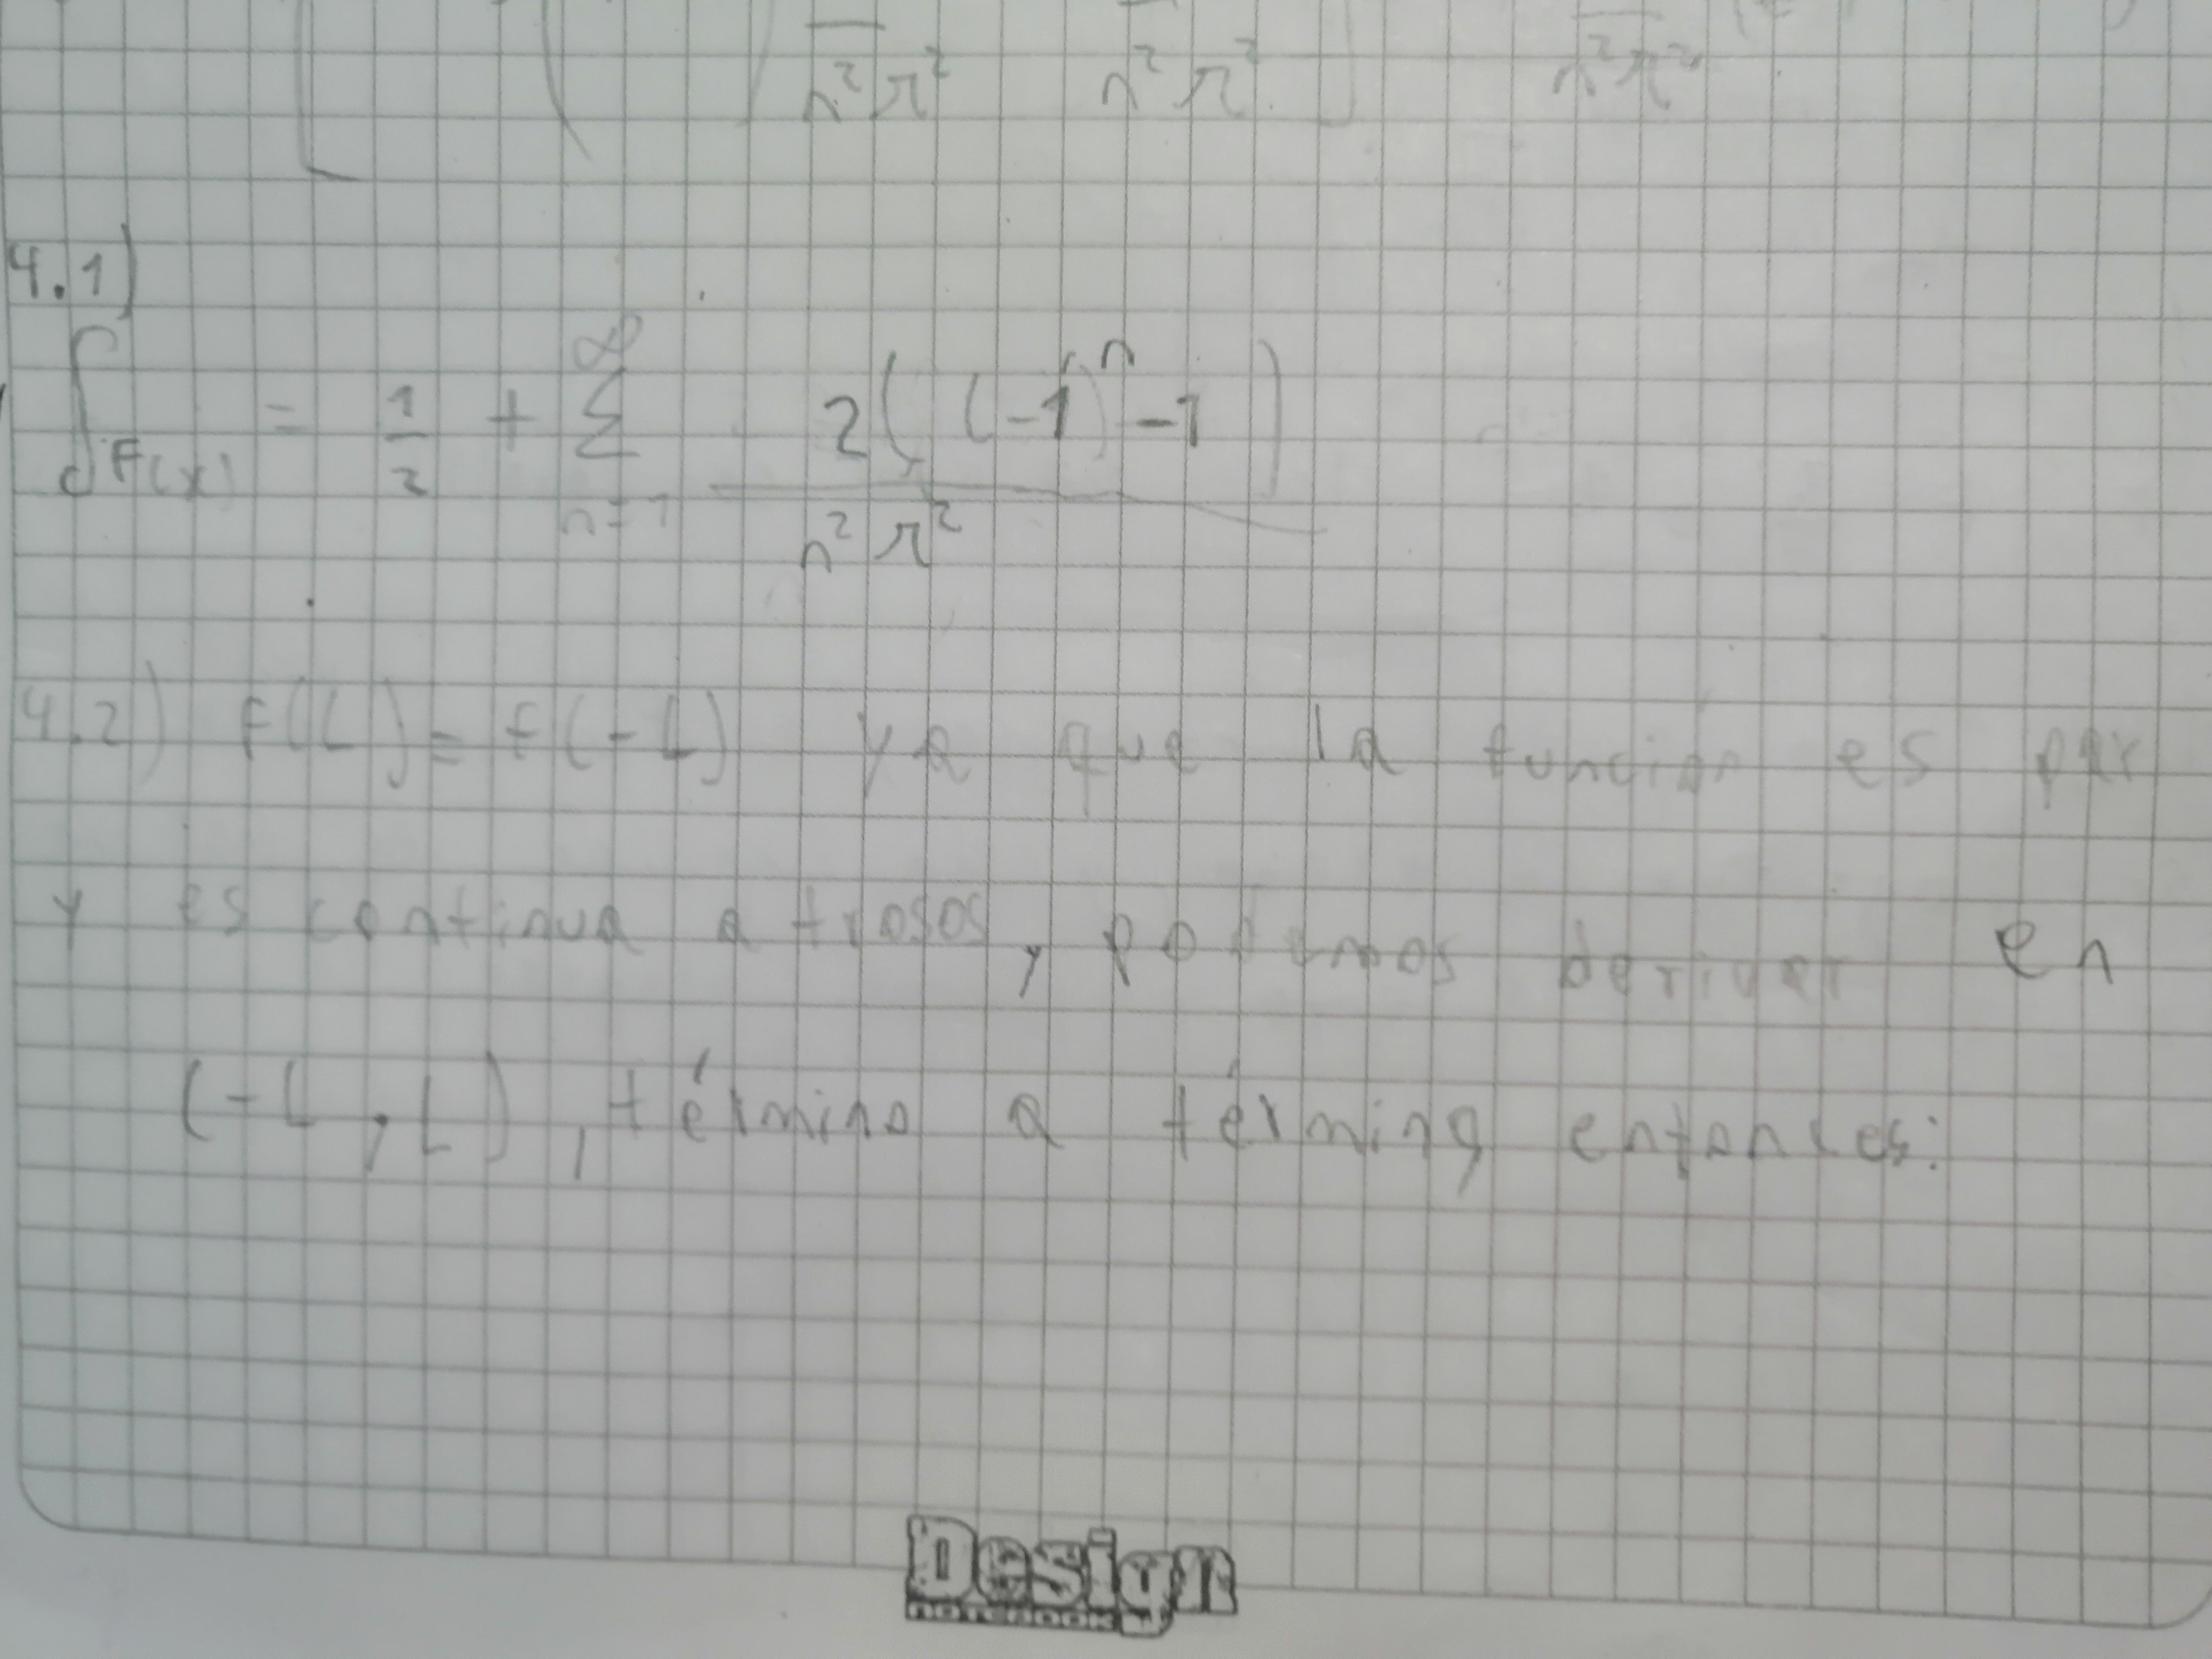 n²π² n²π² n²π²
4.1)
∫F(x) = 1/2 + ∞ Σ n=1 2((-1)ⁿ-1) / n²π²
4.2) F(L) = F(-L) ya que la función es par
y es continua a trosos, podemos derivar en
(-L, L), término a término entonces:
Design
notebook